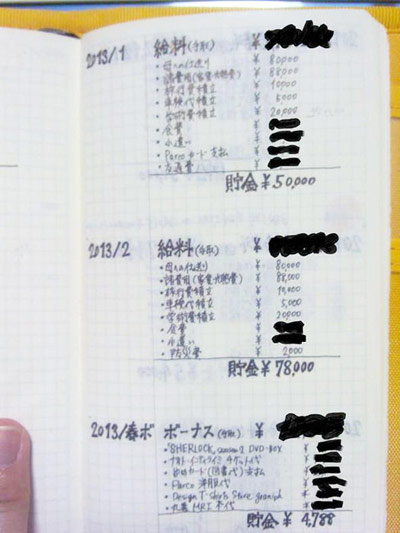 2013/1 給料(手取) ¥
・母への仕送り ¥ 80,000
・諸費用(家賃光熱費) ¥ 88,000
・旅行費積立 ¥ 10,000
・車検代積立 ¥ 5,000
・学術費積立 ¥ 20,000
・食費 ¥
・小遣い ¥
・Parcoカード支払 ¥
・交通費 ¥
貯金 ¥50,000
2013/2 給料(手取) ¥
・母への仕送り ¥ 80,000
・諸費用(家賃光熱費) ¥ 88,000
・旅行費積立 ¥ 10,000
・車検代積立 ¥ 5,000
・学術費積立 ¥ 20,000
・食費 ¥
・小遣い ¥
・防災費 ¥ 2,000
貯金 ¥78,000
2013/春ボ ボーナス(手取) ¥
・SHERLOCK season2 DVD-BOX ¥
・ナオト・インティライミ チケット代 ¥
・カード(図書代)支払 ¥
・Parco 洋服代 ¥
・Design T-shirts Store graniph ¥
・丸善 本代 ¥
貯金 ¥ 4,788